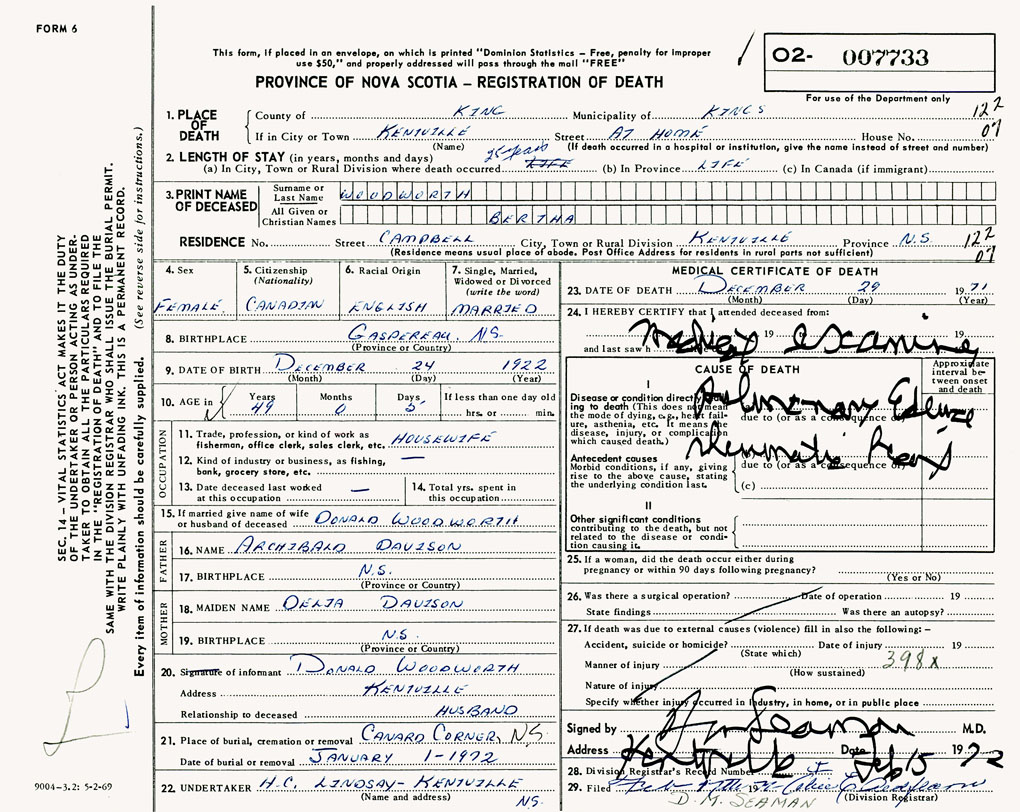 FORM 6
This form, if placed in an envelope, on which is printed "Dominion Statistics – Free, penalty for improper
use $50," and properly addressed will pass through the mail "FREE"
PROVINCE OF NOVA SCOTIA – REGISTRATION OF DEATH
02- 007733
For use of the Department only
1. PLACE OF DEATH
County of KING Municipality of KINGS 122
If in City or Town KENTVILLE Street AT HOME House No. 07
(Name) (If death occurred in a hospital or institution, give the name instead of street and number)
2. LENGTH OF STAY (in years, months and days) 25 years
(a) In City, Town or Rural Division where death occurred LIFE (b) In Province LIFE (c) In Canada (if immigrant)
3. PRINT NAME OF DECEASED
Surname or Last Name WOODWORTH
All Given or Christian Names BERTHA
RESIDENCE No. Street CAMPBELL City, Town or Rural Division KENTVILLE Province N.S. 122
(Residence means usual place of abode. Post Office Address for residents in rural parts not sufficient) 07
4. Sex FEMALE
5. Citizenship (Nationality) CANADIAN
6. Racial Origin ENGLISH
7. Single, Married, Widowed or Divorced (write the word) MARRIED
8. BIRTHPLACE GASPEREAU, N.S.
(Province or Country)
9. DATE OF BIRTH DECEMBER 24 1922
(Month) (Day) (Year)
10. AGE in Years 49 Months 0 Days 5 If less than one day hrs. or min.
OCCUPATION
11. Trade, profession, or kind of work as
fisherman, office clerk, sales clerk, etc. HOUSEWIFE
12. Kind of industry or business, as fishing,
bank, grocery store, etc. —
13. Date deceased last worked
at this occupation —
14. Total yrs. spent in
this occupation
15. If married give name of wife
or husband of deceased DONALD WOODWORTH
FATHER
16. NAME ARCHIBALD DAVISON
17. BIRTHPLACE N.S.
(Province or Country)
MOTHER
18. MAIDEN NAME DELIA DAVISON
19. BIRTHPLACE N.S.
(Province or Country)
20. Signature of informant DONALD WOODWORTH
Address KENTVILLE
Relationship to deceased HUSBAND
21. Place of burial, cremation or removal CANARD CORNER, N.S.
Date of burial or removal JANUARY 1-1972
22. UNDERTAKER H.C. LINDSAY - KENTVILLE
(Name and address) N.S.
MEDICAL CERTIFICATE OF DEATH
23. DATE OF DEATH DECEMBER 29 1971
(Month) (Day) (Year)
24. I HEREBY CERTIFY that I attended deceased from:
19 19
and last saw h
Medical Examiner
CAUSE OF DEATH
Approximate interval between onset and death
I
Disease or condition directly leading to death (This does not mean
the mode of dying, e.g., heart failure, asthenia, etc. It means
disease, injury, or complication
which caused death.)
Pulmonary Edema
due to (or as a consequence of)
Antecedent causes
Morbid conditions, if any, giving
rise to the above cause, stating
the underlying condition last.
Rheumatic Heart
due to (or as a consequence of)
(c)
II
Other significant conditions
contributing to the death, but not
related to the disease or condition causing it.
25. If a woman, did the death occur either during
pregnancy or within 90 days following pregnancy?
(Yes or No)
26. Was there a surgical operation? Date of operation 19
State findings Was there an autopsy?
27. If death was due to external causes (violence) fill in also the following: –
Accident, suicide or homicide? Date of injury 19
(State which)
Manner of injury 398x
(How sustained)
Nature of injury
Specify whether injury occurred in Industry, in home, or in public place
Signed by Seaman M.D.
Address Kentville Date Feb 15 1972
28. Division Registrar's Record Number
29. Filed Feb 17th 19
(Division Registrar)
D. M. SEAMAN
SEC. 14 – VITAL STATISTICS ACT MAKES IT THE DUTY
OF THE UNDERTAKER OR PERSON ACTING AS UNDER-
TAKER TO OBTAIN ALL THE PARTICULARS REQUIRED
IN THE "REGISTRATION OF DEATH" AND TO FILE THE
SAME WITH THE DIVISION REGISTRAR WHO SHALL ISSUE THE BURIAL PERMIT.
WRITE PLAINLY WITH UNFADING INK. THIS IS A PERMANENT RECORD.
Every item of information should be carefully supplied. (See reverse side for instructions.)
9004-3.2: 5-2-69